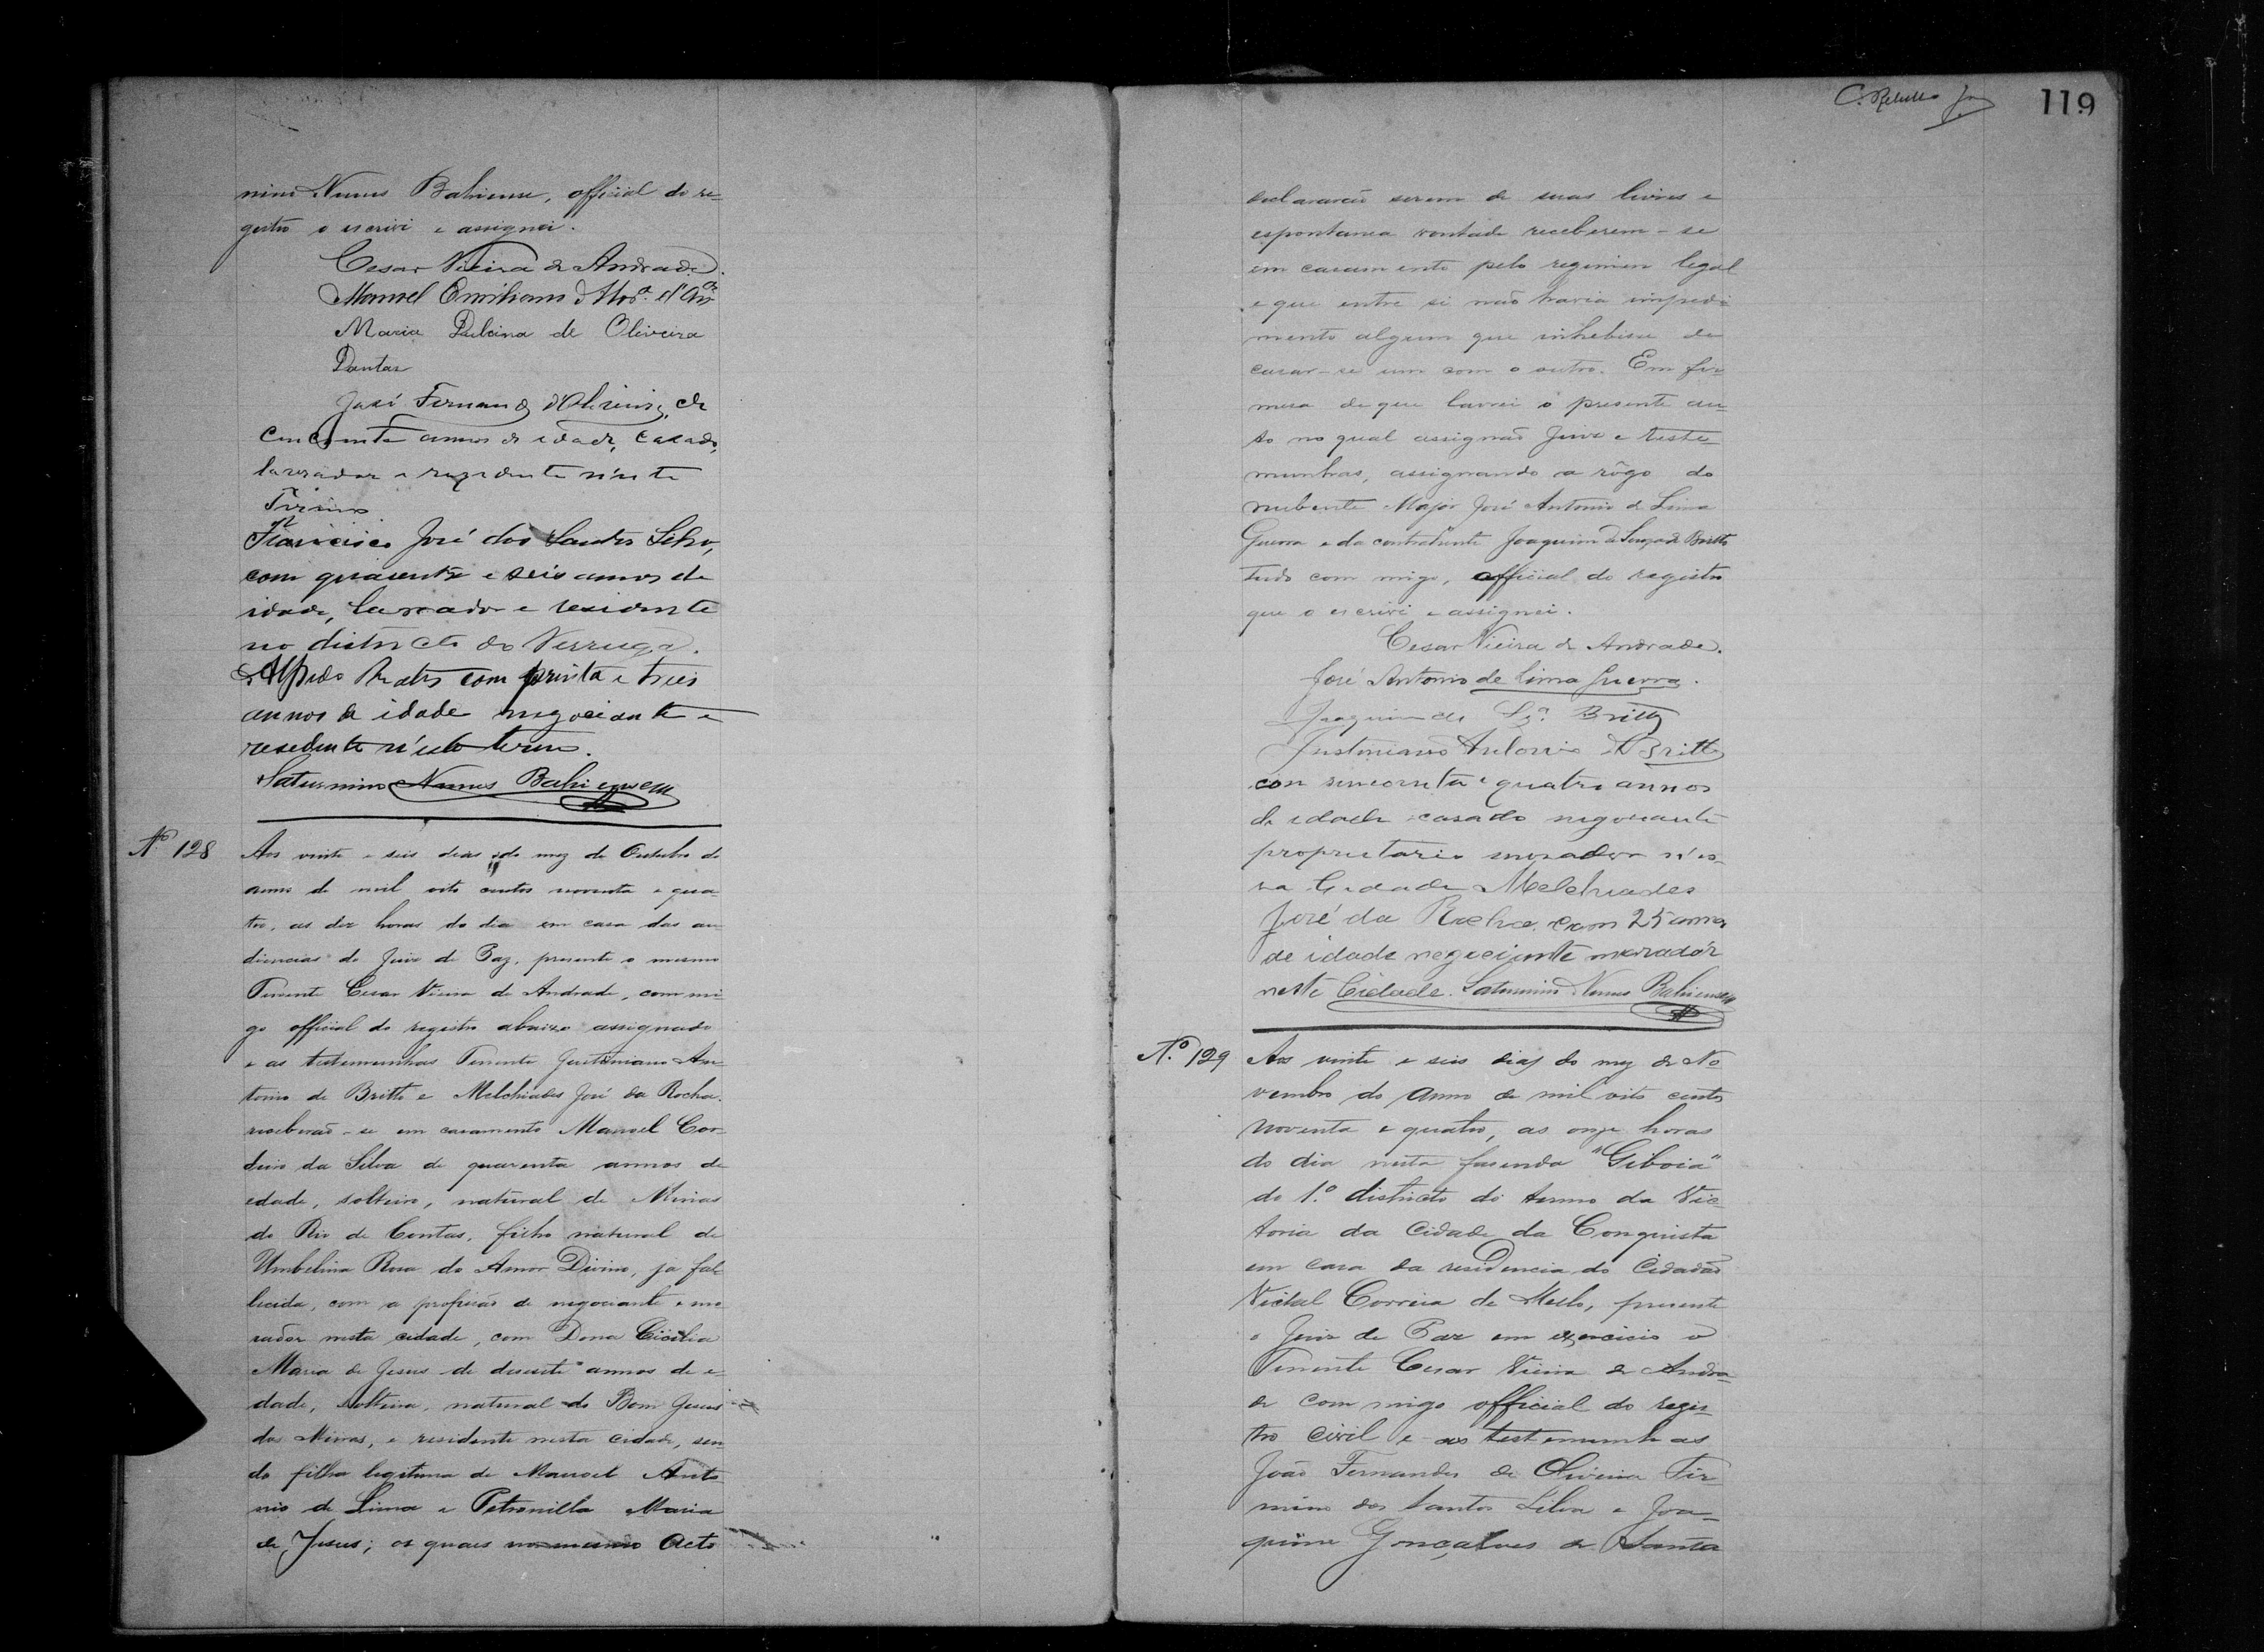 nino Nunes Bahiense, official do re-
gistro o escrivi e assignei.
Cesar Vieira de Andrade.
Manoel Emiliano
Maria Dulcina de Oliveira
Dantas
José Fernandes d'Oliveira, de
cincoenta annos de idade, casado,
lavrador e rezidente n'este
Termo
Francisco José dos Santos Silva,
com quarenta e seis annos de
idade, lavrador e residente
no districto do Verruga.
Alfredo Prates com trinta e treis
annos de idade negociante e
resedente n'este termo.
Saturnino Nunes Bahiense
Nº 128
Aos vinte e seis dias do mez de Outubro do
anno de mil oito centos noventa e qua-
tro, as dez horas do dia em casa das au
diencias do Juiz de Paz, presente o mesmo
Tenente Cesar Vieira de Andrade, com mi-
go official do registro abaixo assignado
e as testemunhas Tenente Justiniano An-
tonio de Britto e Melchiades José da Rocha.
receberão-se em casamento Manoel Cor-
deiro da Silva de quarenta annos de
edade, solteiro, natural de Minas
do Rio de Contas, filho natural de
Umbelina Rosa do Amor Divino, ja fal-
lecida, com a profissão de negociante e mo
rador nesta cidade, com Dona Cicilia
Maria de Jesus de desesete annos de e-
dade, solteira, natural do Bom Jesus
dos Meiras, e residente nesta cidade, sen-
do filha legitima de Manoel Anto
nio de Lima e Petronilla Maria
de Jesus; os quaes no mesmo acto
C. Rebello Jr
119
declararão serem de suas livres e
espontanea vontade receberem-se
em casamento pelo regimen legal
e que entre si não havia impedi
mento algum que inhebisse de
casar-se um com o outro. Em fir
mesa de que lavrei o presente au-
to no qual assignão Juiz e teste
munhas, assignando a rôgo do
nubente Major José Antonio de Lima
Guerra e da contrahente Joaquim de Souza de Britto
tudo com migo, official do registro
que o escrivi e assignei.
Cesar Vieira de Andrade.
José Antonio de Lima Guerra.
Joaquim de Sza. Britto
Justiniano Antonio de Britto
con sincoenta e quatro annos
de edade casado negociante
proprietario morador n'es-
ta Cidade Melchiades
José da Rocha com 25 annos
de idade negociante morador
nesta Cidade. Saturnino Nunes Bahiense
N.º 129
Aos vinte e seis dias do mez de No
vembro do anno de mil oito centos
noventa e quatro, as onze horas
do dia nesta fasenda "Giboia"
do 1.º districto do termo da Vic-
toria da Cidade da Conquista
em casa da residencia do Cidadão
Victal Correia de Mello, presente
o Juiz de Paz em exercicio o
Tenente Cesar Vieira de Andra-
de com migo official do regis-
tro civil e as testemunhas
João Fernandes de Oliveira Fir-
mino dos Santos Silva e Joa-
quim Gonçalves de Santa